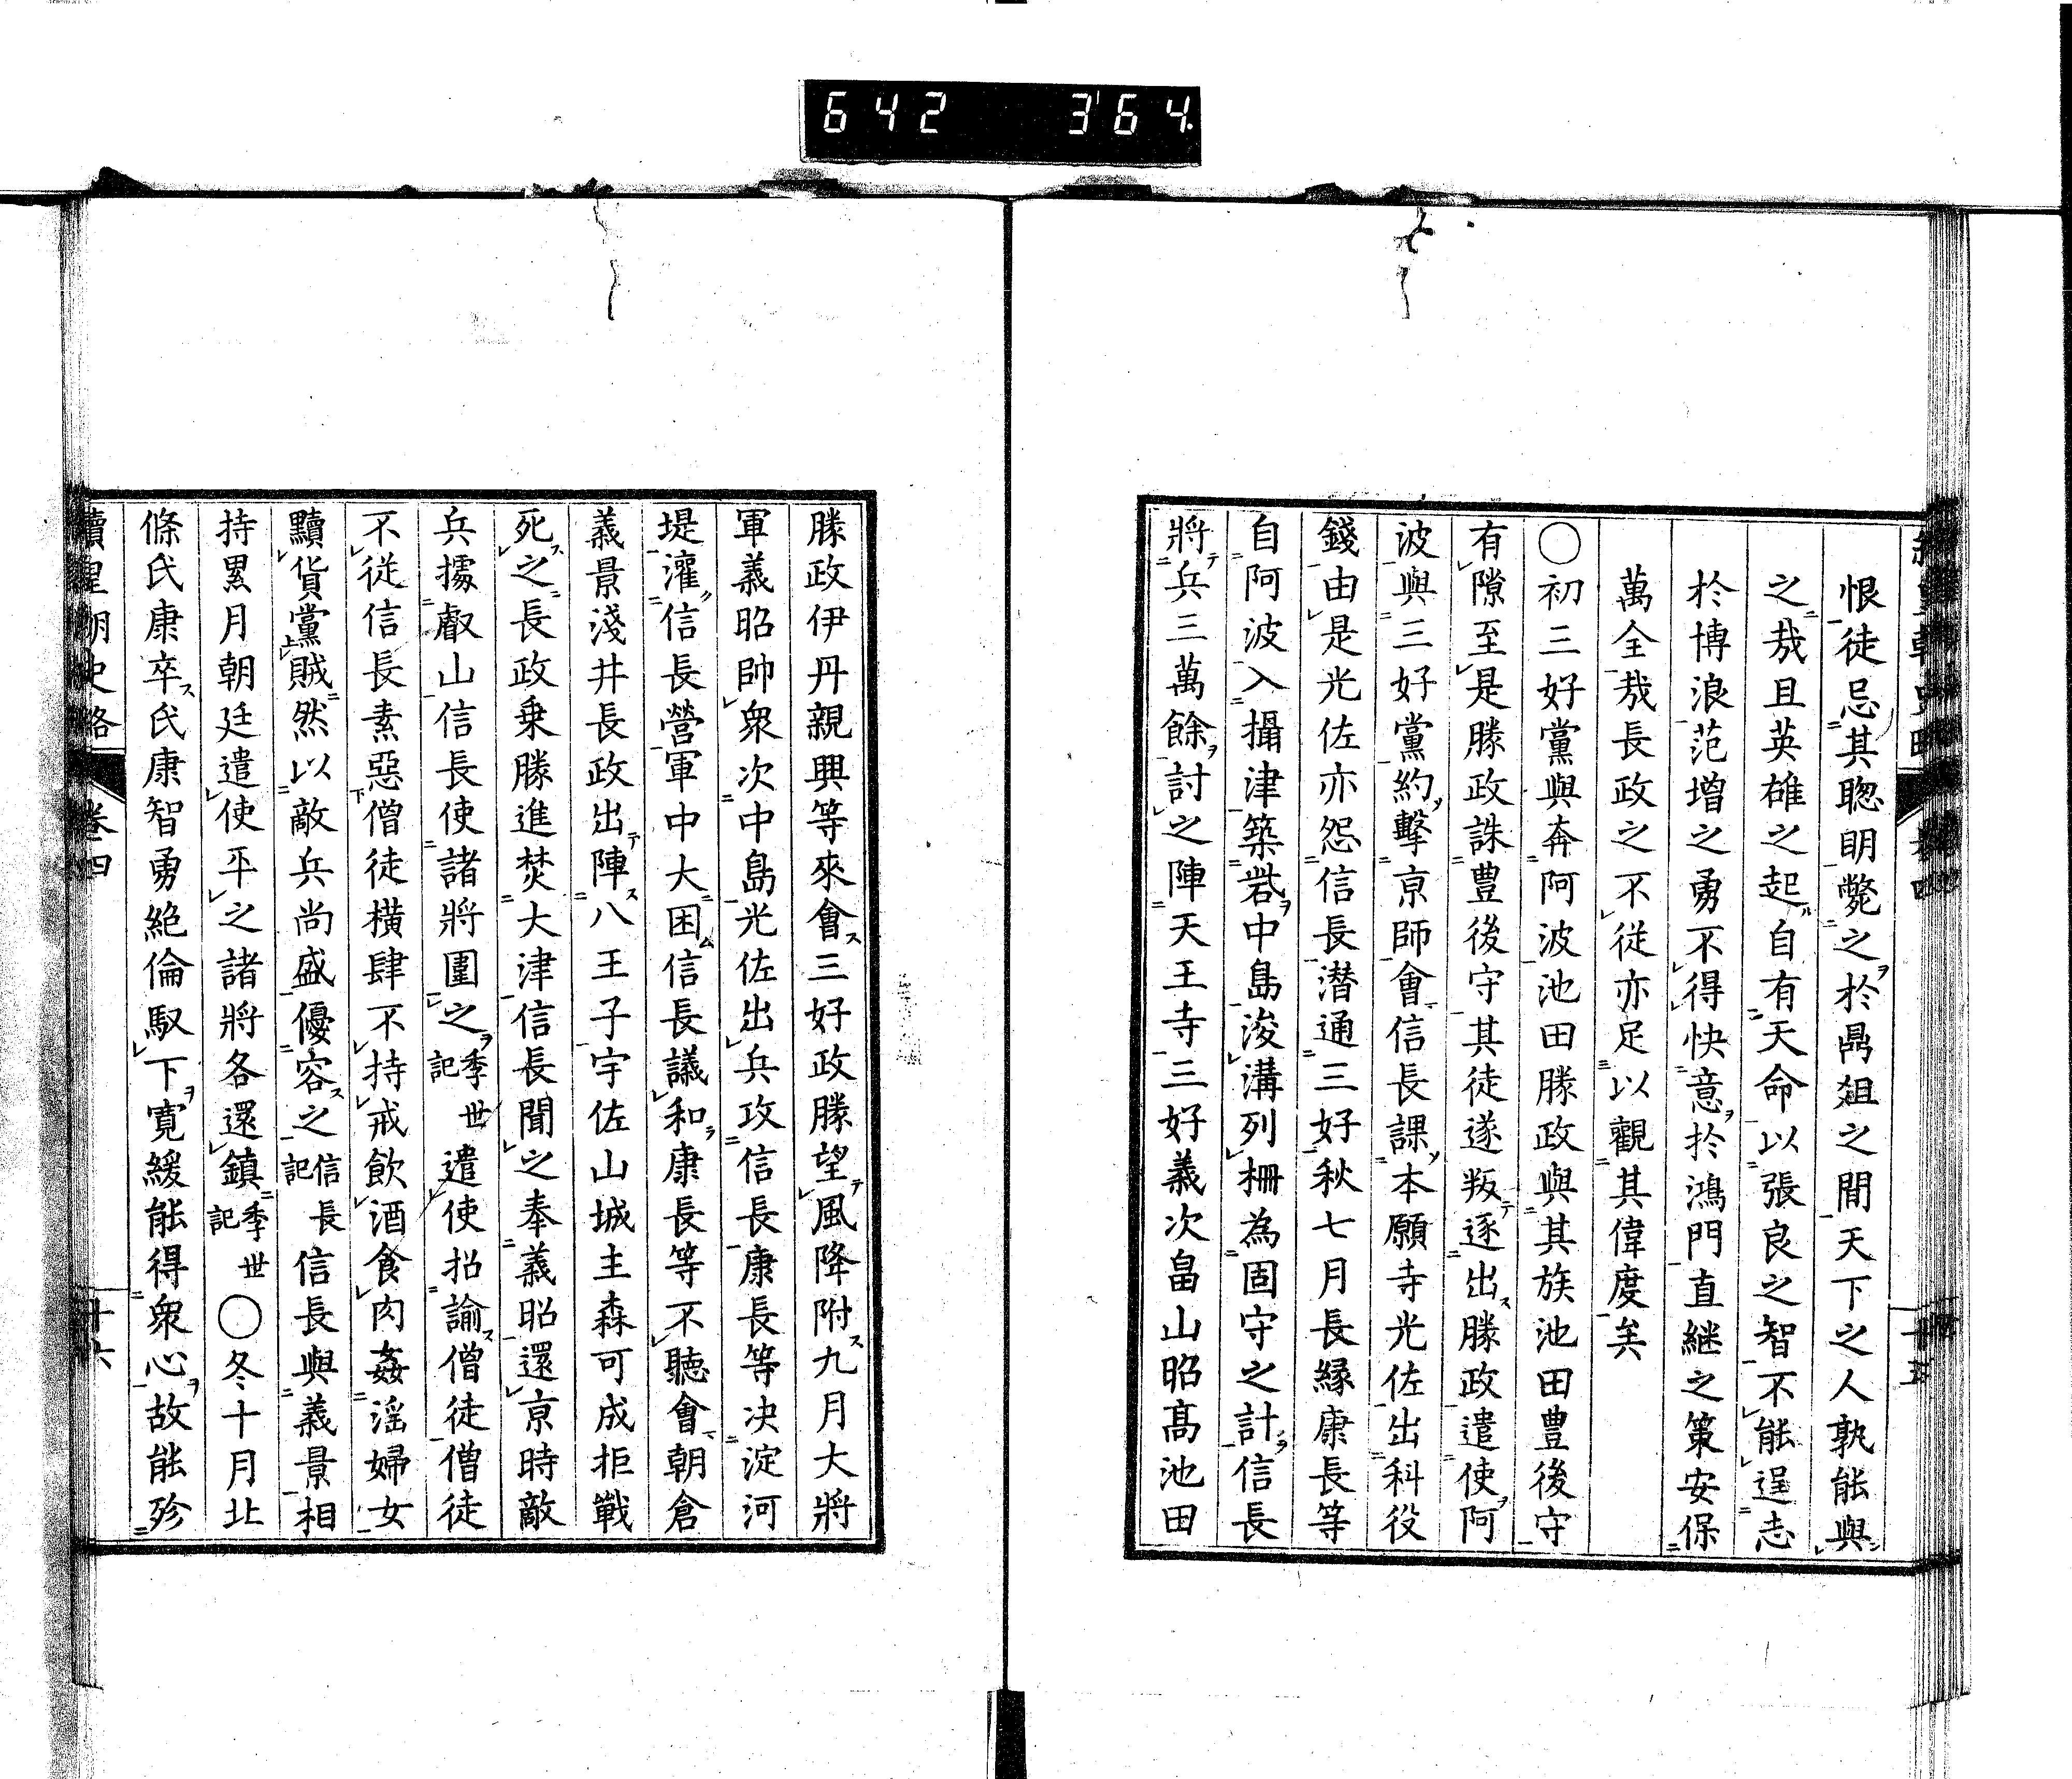 642 364
恨徒忌其聰明斃之於鼎俎之間天下之人孰能與
之哉且英雄之起自有天命以張良之智不能逞志
於博浪范增之勇不得快意於鴻門直継之策安保
萬全哉長政之不從亦足以觀其偉度矣
○初三好黨與奔阿波池田勝政與其族池田豊後守
有隙至是勝政誅豊後守其徒遂叛逐出勝政遣使阿
波與三好黨約擊京師會信長課本願寺光佐出科役
錢由是光佐亦怨信長潜通三好秋七月長縁康長等
自阿波入攝津築砦中島浚溝列柵為固守之計信長
將兵三萬餘討之陣天王寺三好義次畠山昭髙池田
勝政伊丹親興等來會三好政勝望風降附九月大將
軍義昭帥衆次中島光佐出兵攻信長康長等决淀河
堤灌信長營軍中大困信長議和康長等不聽會朝倉
義景淺井長政出陣八王子宇佐山城主森可成拒戰
死之長政乗勝進焚大津信長聞之奉義昭還京時敵
兵據叡山信長使諸將圍之季世記遣使招諭僧徒僧徒
不従信長素惡僧徒橫肆不持戒飲酒食肉姦淫婦女
黷貨黨賊然以敵兵尚盛優容之信長記信長與義景相
持累月朝廷遣使平之諸將各還鎮季世記○冬十月北
條氏康卒氏康智勇絶倫馭下寛緩能得衆心故能殄
續皇朝史略 卷四 十六